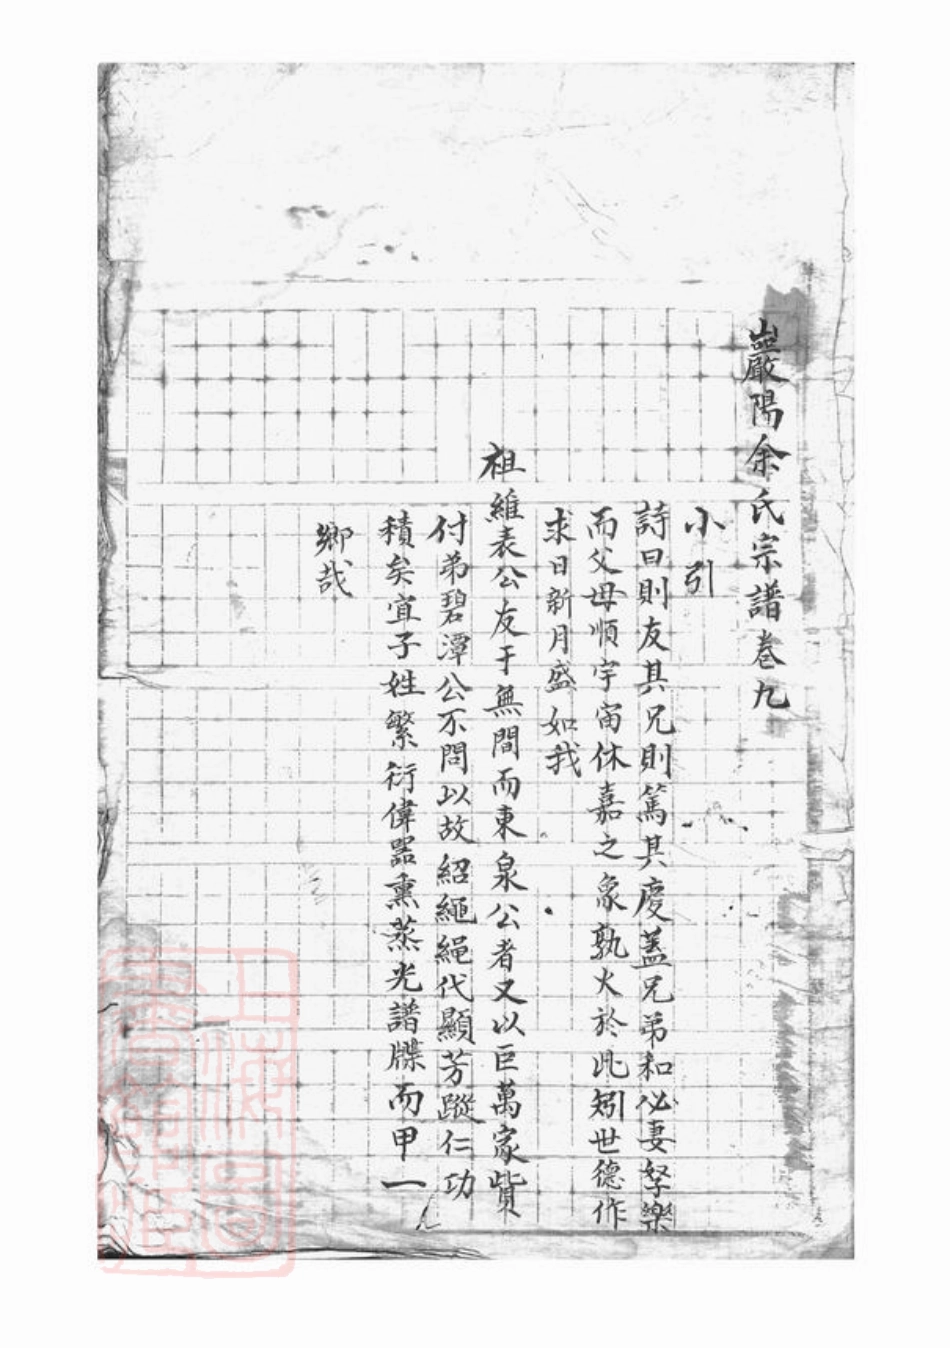 巖陽余氏宗譜卷九
小引
詩曰則友其兄則篤其慶蓋兄弟和必妻孥樂
而父母順宇宙休嘉之象孰大於此矧世德作
求日新月盛如我
祖維表公友于無間而東泉公者又以巨萬家貲
付弟碧潭公不問以故紹繩繩代顯芳蹤仁功
積矣宜子姓繁衍偉器熏蒸光譜牒而甲一
鄉哉